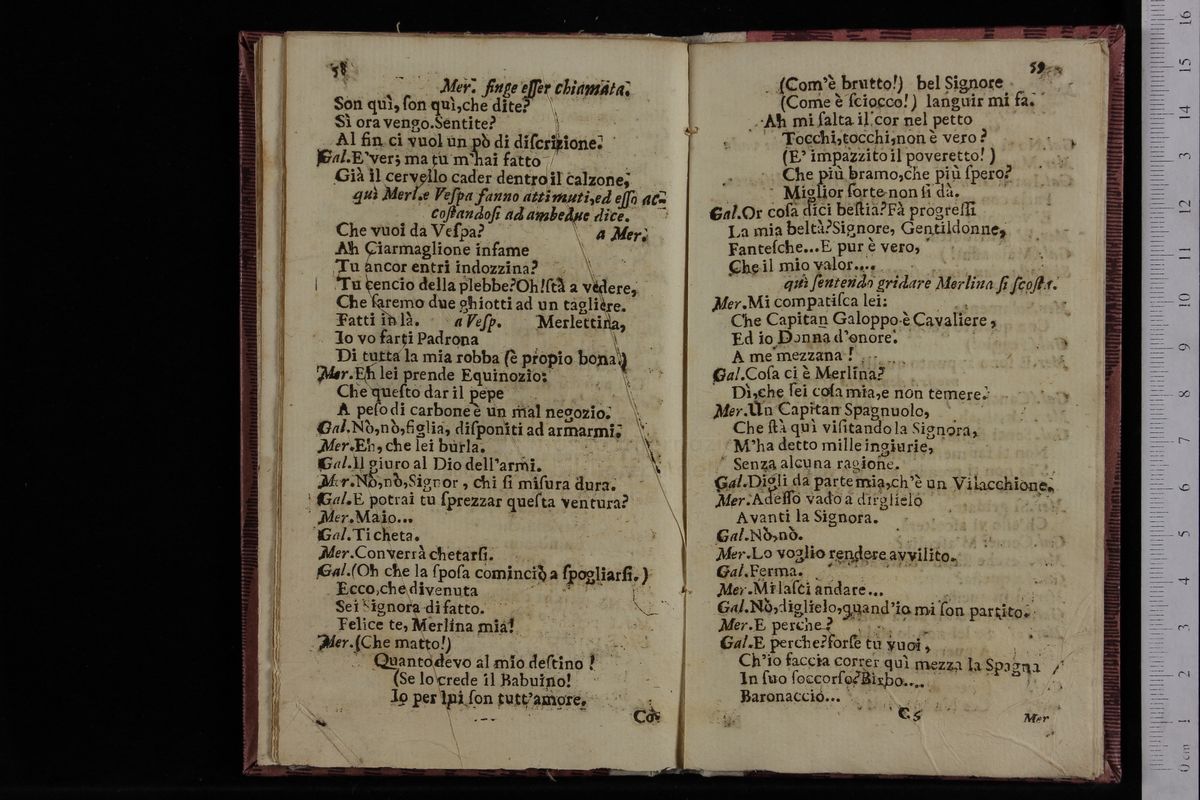 58
Mer. finge eſſer chiamata.
Son quì, ſon quì,che dite?
Sì ora vengo.Sentite?
Al fin ci vuol un pò di diſcrizione.
Gal.E'ver; ma tu m'hai fatto
Già il cervello cader dentro il calzone,
quì Mer.e Veſpa fanno atti muti,ed eſſo ac-
coſtandoſi ad ambedue dice.
Che vuoi da Veſpa? a Mer.
Ah Ciarmaglione infame
Tu ancor entri indozzina?
Tu cencio della plebbe?Oh!ſtà a vedere,
Che faremo due ghiotti ad un tagliere.
Fatti in là. a Veſp. Merlettina,
Io vo farti Padrona
Di tutta la mia robba (è propio bona.)
Mer.Eh lei prende Equinozio:
Che queſto dar il pepe
A peſo di carbone è un mal negozio.
Gal.Nò,nò,figlia, diſponiti ad armarmi.
Mer.Eh, che lei burla.
Gal.Il giuro al Dio dell'armi.
Mer.Nò,nò,Signor, chi ſi miſura dura.
Gal.E potrai tu ſprezzar queſta ventura?
Mer.Maio...
Gal.Ti cheta.
Mer.Converrà chetarſi.
Gal.(Oh che la ſpoſa cominciò a ſpogliarſi.)
Ecco,che divenuta
Sei Signora di fatto.
Felice te, Merlina mia!
Mer.(Che matto!)
Quanto devo al mio deſtino!
(Se lo crede il Babuino!
Io per lui ſon tutt'amore.
Co-
59
(Com'è brutto!) bel Signore
(Come è ſciocco!) languir mi fa.
Ah mi ſalta il cor nel petto
Tocchi,tocchi,non è vero?
(E' impazzito il poveretto!)
Che più bramo,che più ſpero?
Miglior ſorte non ſi dà.
Gal.Or coſa dici beſtia?Fà progreſſi
La mia beltà?Signore, Gentildonne,
Fanteſche...E pur è vero,
Che il mio valor....
quì ſentendo gridare Merlina ſi ſcoſta.
Mer.Mi compatiſca lei:
Che Capitan Galoppo è Cavaliere,
Ed io Donna d'onore.
A me mezzana!
Gal.Coſa ci è Merlina?
Dì,che ſei coſa mia,e non temere.
Mer.Un Capitan Spagnuolo,
Che ſtà quì viſitando la Signora,
M'ha detto mille ingiurie,
Senza alcuna ragione.
Gal.Digli da parte mia,ch'è un Vilacchione.
Mer.Adeſſo vado a dirglielo
Avanti la Signora.
Gal.Nò,nò.
Mer.Lo voglio rendere avvilito.
Gal.Ferma.
Mer.Mi laſci andare...
Gal.Nò,diglielo,quand'io mi ſon partito.
Mer.E perche?
Gal.E perche?forſe tu vuoi,
Ch'io faccia correr quì mezza la Spagna
In ſuo ſoccorſo?Birbo....
Baronaccio...
C 5
Mer
16
15
14
13
12
11
10
9
8
7
6
5
4
3
2
1
0 cm